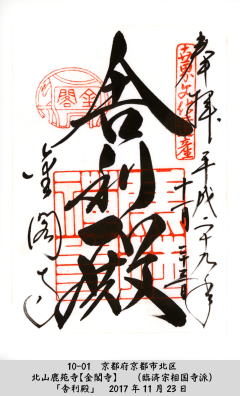 奉拝
平成二十九年
十一月二十三日
世界文化遺産
舎利殿
金閣
金閣寺
10-01 京都府京都市北区
北山鹿苑寺【金閣寺】 (臨済宗相国寺派)
「舎利殿」 2017年11月23日